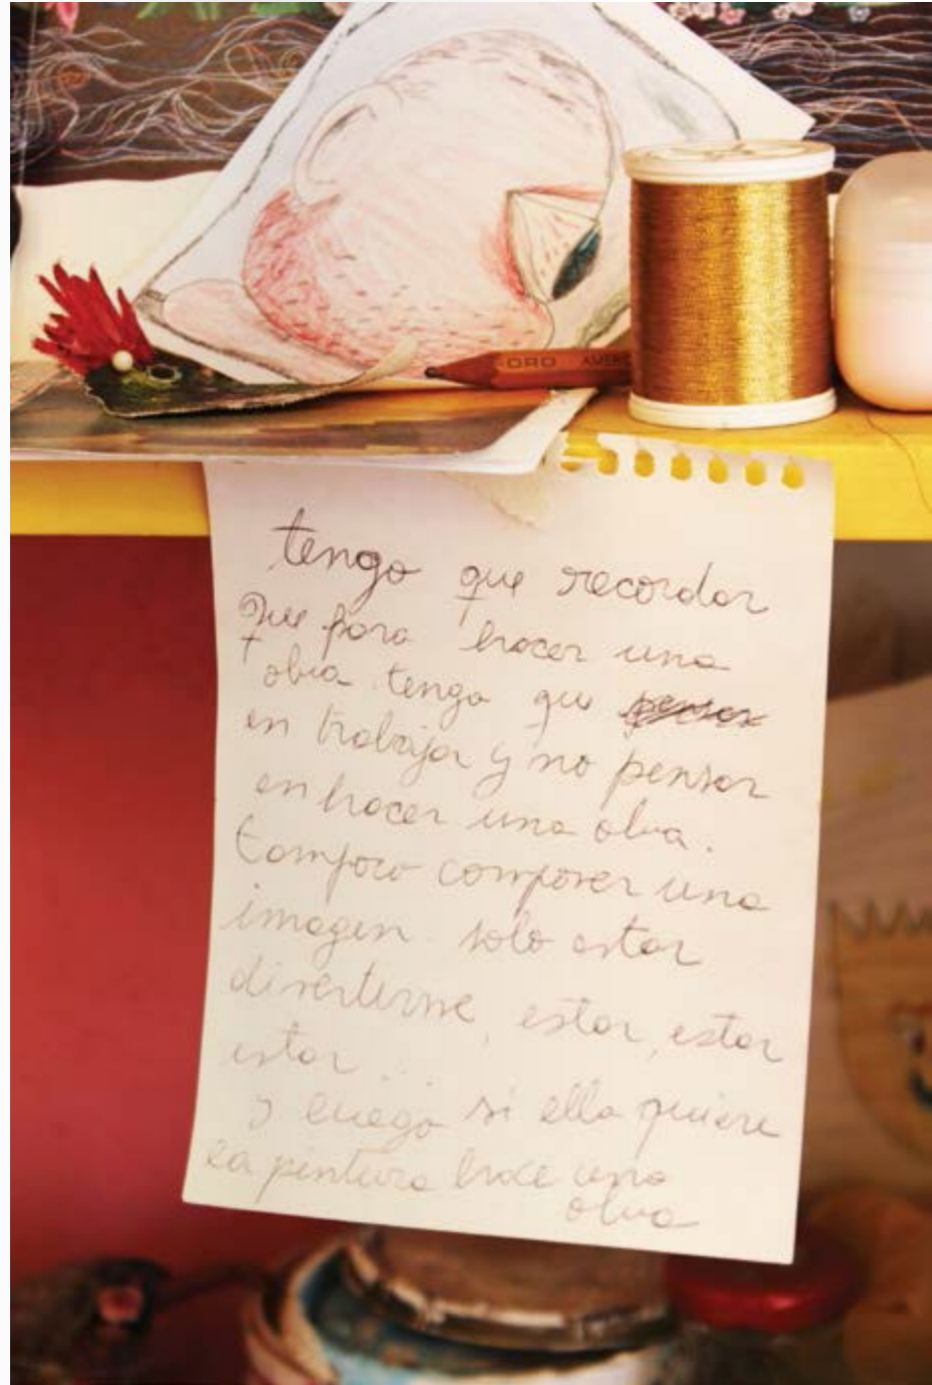 ORO AMER
tengo que recordar
Que para hacer una
obra tengo que pensar
en trabajar y no pensar
en hacer una obra.
tampoco componer una
imagen. solo estar
divertirme, estar, estar
estar...
y luego si ella quiere
la pintura hace una
obra